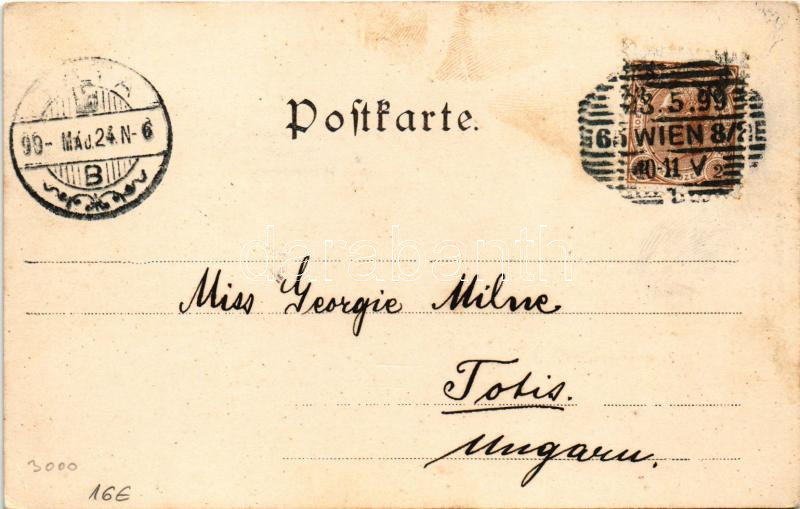 Postkarte.
99- MÁJ.24.N-6
B
3.5.99
65 WIEN 8/
10-11 V
2
darabanth
Miss Georgie Milne
Totis.
Ungarn.
3000
16€